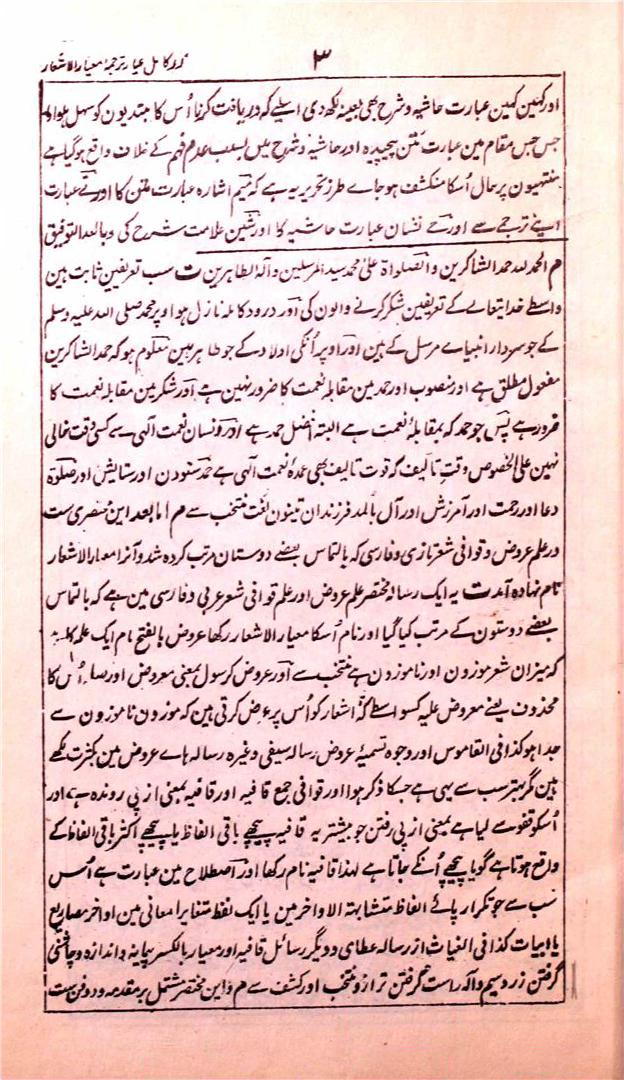 ۳
زر کامل عیار ترجمۂ معیار الاشعار
اور کہین کہین عبارت حاشیہ و شرح بھی بعینہ لکھ دی اسلیے کہ دریافت کرنا اُس کا مبتدیون کو سہل ہو اور
جس جس مقام مین عبارت متن پیچیدہ اور حاشیہ و شرح مین بسبب عدم فہم کے خلاف واقع ہوگیا ہے
منتہیون پر حال اُسکا منکشف ہوجاے طرز تحریر یہ ہے کہ میم اشارہ عبارت متن کا اور تے عبارت
اپنے ترجمے سے اور حے نشان عبارت حاشیہ کا اور شین علامت شرح کی و باللہ التوفیق
م الحمد للہ حمد الشاکرین و الصلواۃ علیٰ محمد سید المرسلین و آلہ الطاہرین ت سب تعریفین ثابت ہین
واسطے خداےتعالے کے تعریفین شکر کرنے والون کی اور درود کاملہ نازل ہو اوپر محمد صلی اللہ علیہ وسلم
کے جو سردار انبیاے مرسل کے ہین اور اوپر اُنکی اولاد کے جو طاہر ہین معلوم ہو کہ حمد الشاکرین
مفعول مطلق ہے اور منصوب اور حمد مین مقابلہ نعمت کا ضرور نہین ہے اور شکر مین مقابلہ نعمت کا
ضرور ہے پس جو حمد کہ بمقابلۂ نعمت ہے البتہ افضل حمد ہے اور انسان نعمت الٰہی سے کسی وقت خالی
نہین علی الخصوص وقت تالیف کہ قوت تالیف بھی عمدہ نعمت الٰہی ہے حمد ستودن اور ستایش اور صلوۃ
دعا اور رحمت اور آمرزش اور آل بالمد فرزندان تینون لغت منتخب سے م اما بعد این مختصری ست
در علم عروض و قوافی شعر تازی و فارسی کہ بالتماس بعضے دوستان مرتب کردہ شد و آنرا معیار الاشعار
نام نہادہ آمد ت یہ ایک رسالہ مختصر علم عروض اور علم قوافی شعر عربی و فارسی مین ہے کہ بالتماس
بعضے دوستون کے مرتب کیا گیا اور نام اُسکا معیار الاشعار رکھا عروض بالفتح نام ایک علم کا ہے
کہ میزان شعر موزون اور ناموزون ہے منتخب سے اور عروض کرسول بمعنی معروض اور صلہ اُس کا
محذوف یعنے معروض علیہ کسواسطے کہ اشعار کو اُس پر عرض کرتی ہین کہ موزون ناموزون سے
جدا ہو کذا فی القاموس اور وجوہ تسمیۂ عروض رسالہ سیفی وغیرہ رسالہ ہاے عروض مین بکثرت لکھے
ہین مگر بہتر سب سے یہی ہے جسکا ذکر ہوا اور قوافی جمع قافیہ اور قافیہ بمعنی از پی روندہ ہے اور
اُسکو قفو سے لیا ہے بمعنی از پی رفتن جو بیشتر یہ قافیہ پیچھے باقی الفاظ یا پیچھے اکثر باقی الفاظ کے
واقع ہوتا ہے گویا پیچھے اُنکے جاتا ہے لہذا قافیہ نام رکھا اور اصطلاح مین عبارت ہے اُس
سب سے جو تکرار پائے الفاظ متشابتہ الاواخر مین یا ایک لفظ متغایر المعانی مین اواخر مصاریع
یا ابیات کذا فی الغیاث از رسالہ عطای و دیگر رسائل قافیہ اور معیار بالکسر پیمانہ و اندازہ و چاشنی
گرفتن زر و سیم و آلہ راست گرفتن ترازو منتخب اور کشف سے م و این مختصر مشتمل بر مقدمہ و دو فن ست